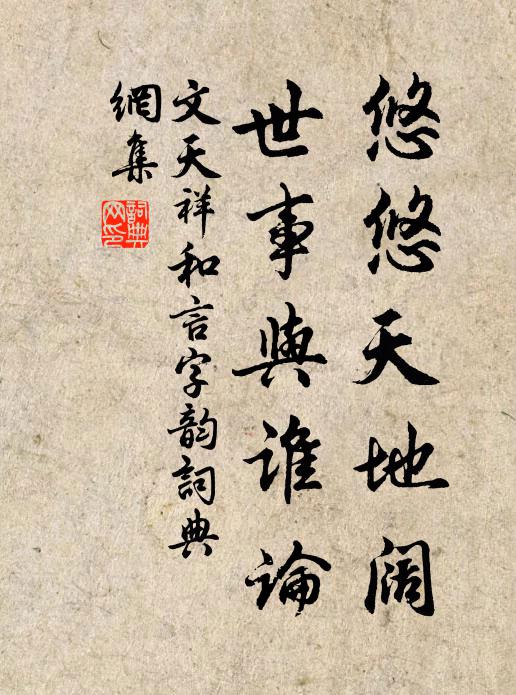 悠悠天地阔
世事與谁論
文天祥和言字韵詞典
網集
詞典网印